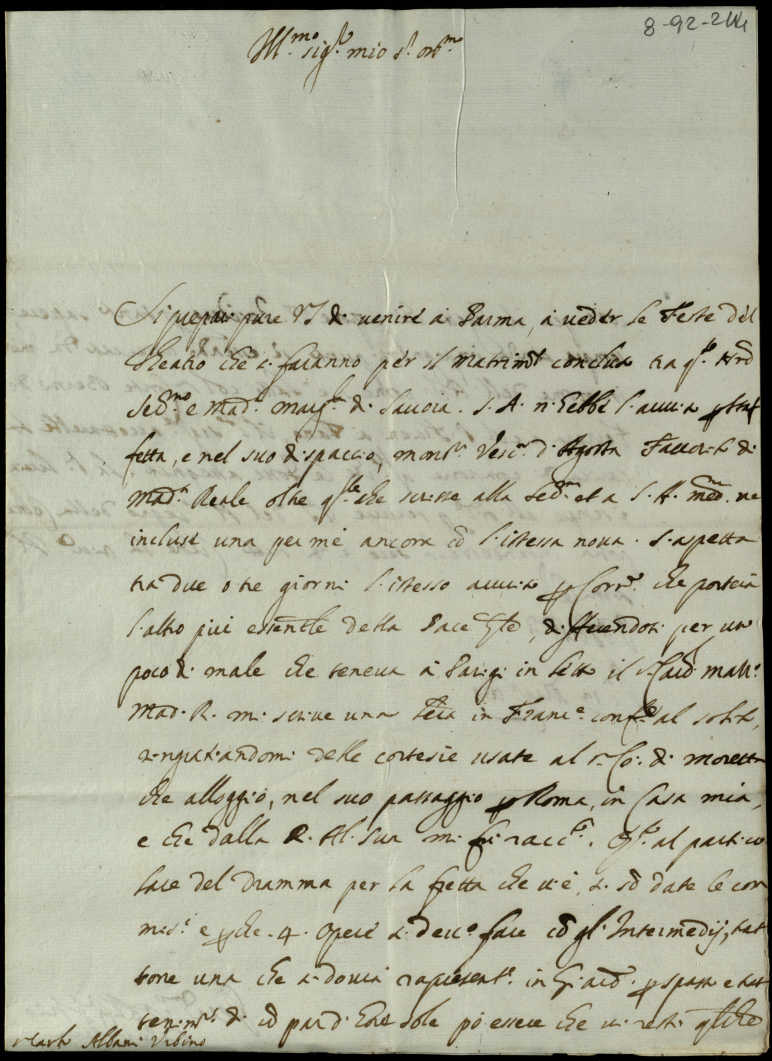 8-92-214
Ill.mo sig.r mio S.r oss.mo
Si prepari pure VS di venire a Parma, a veder le Feste del
theatro che si faranno per il matrim.o concluso tra q.sto
Ser.mo e Mad.a Marg.ta di Savoia. S. A. n'hebbe l'aviso
fetta, e nel suo dispaccio, mons.r Vesc.o d'Agosta
Mad.a Reale oltre q.lle che scrisse alla Ser.ma et a S. A. med.ma ne
incluse una per me ancora cō l'istessa nova. S'aspetta
tra due o tre giorni l'istesso aviso che porterà
l'altro più della Pace differendosi per un
poco di male che teneva a Parigi in letto il S.r Card. Mazz.o
Mad. R. mi scrive una let.a in Franc.e conf.e al solito,
ringratiandomi delle cortesie usate al S.r Co. di Moretta
che alloggiò, nel suo passaggio Roma, in Casa mia,
e che dalla R. Al. Sua mi fu racc.to. Q.to al partico
lare del dramma per la fretta che v'è, si sō date le com
mis.i e che 4 Opere si dev.o fare cō gl'Intermedij, tut
tone una che si dovrà rapresent.e in Giard.o spasso e trat
ten.to di sole pō essere che vi resti q.lche
r Carlo Albani Urbino